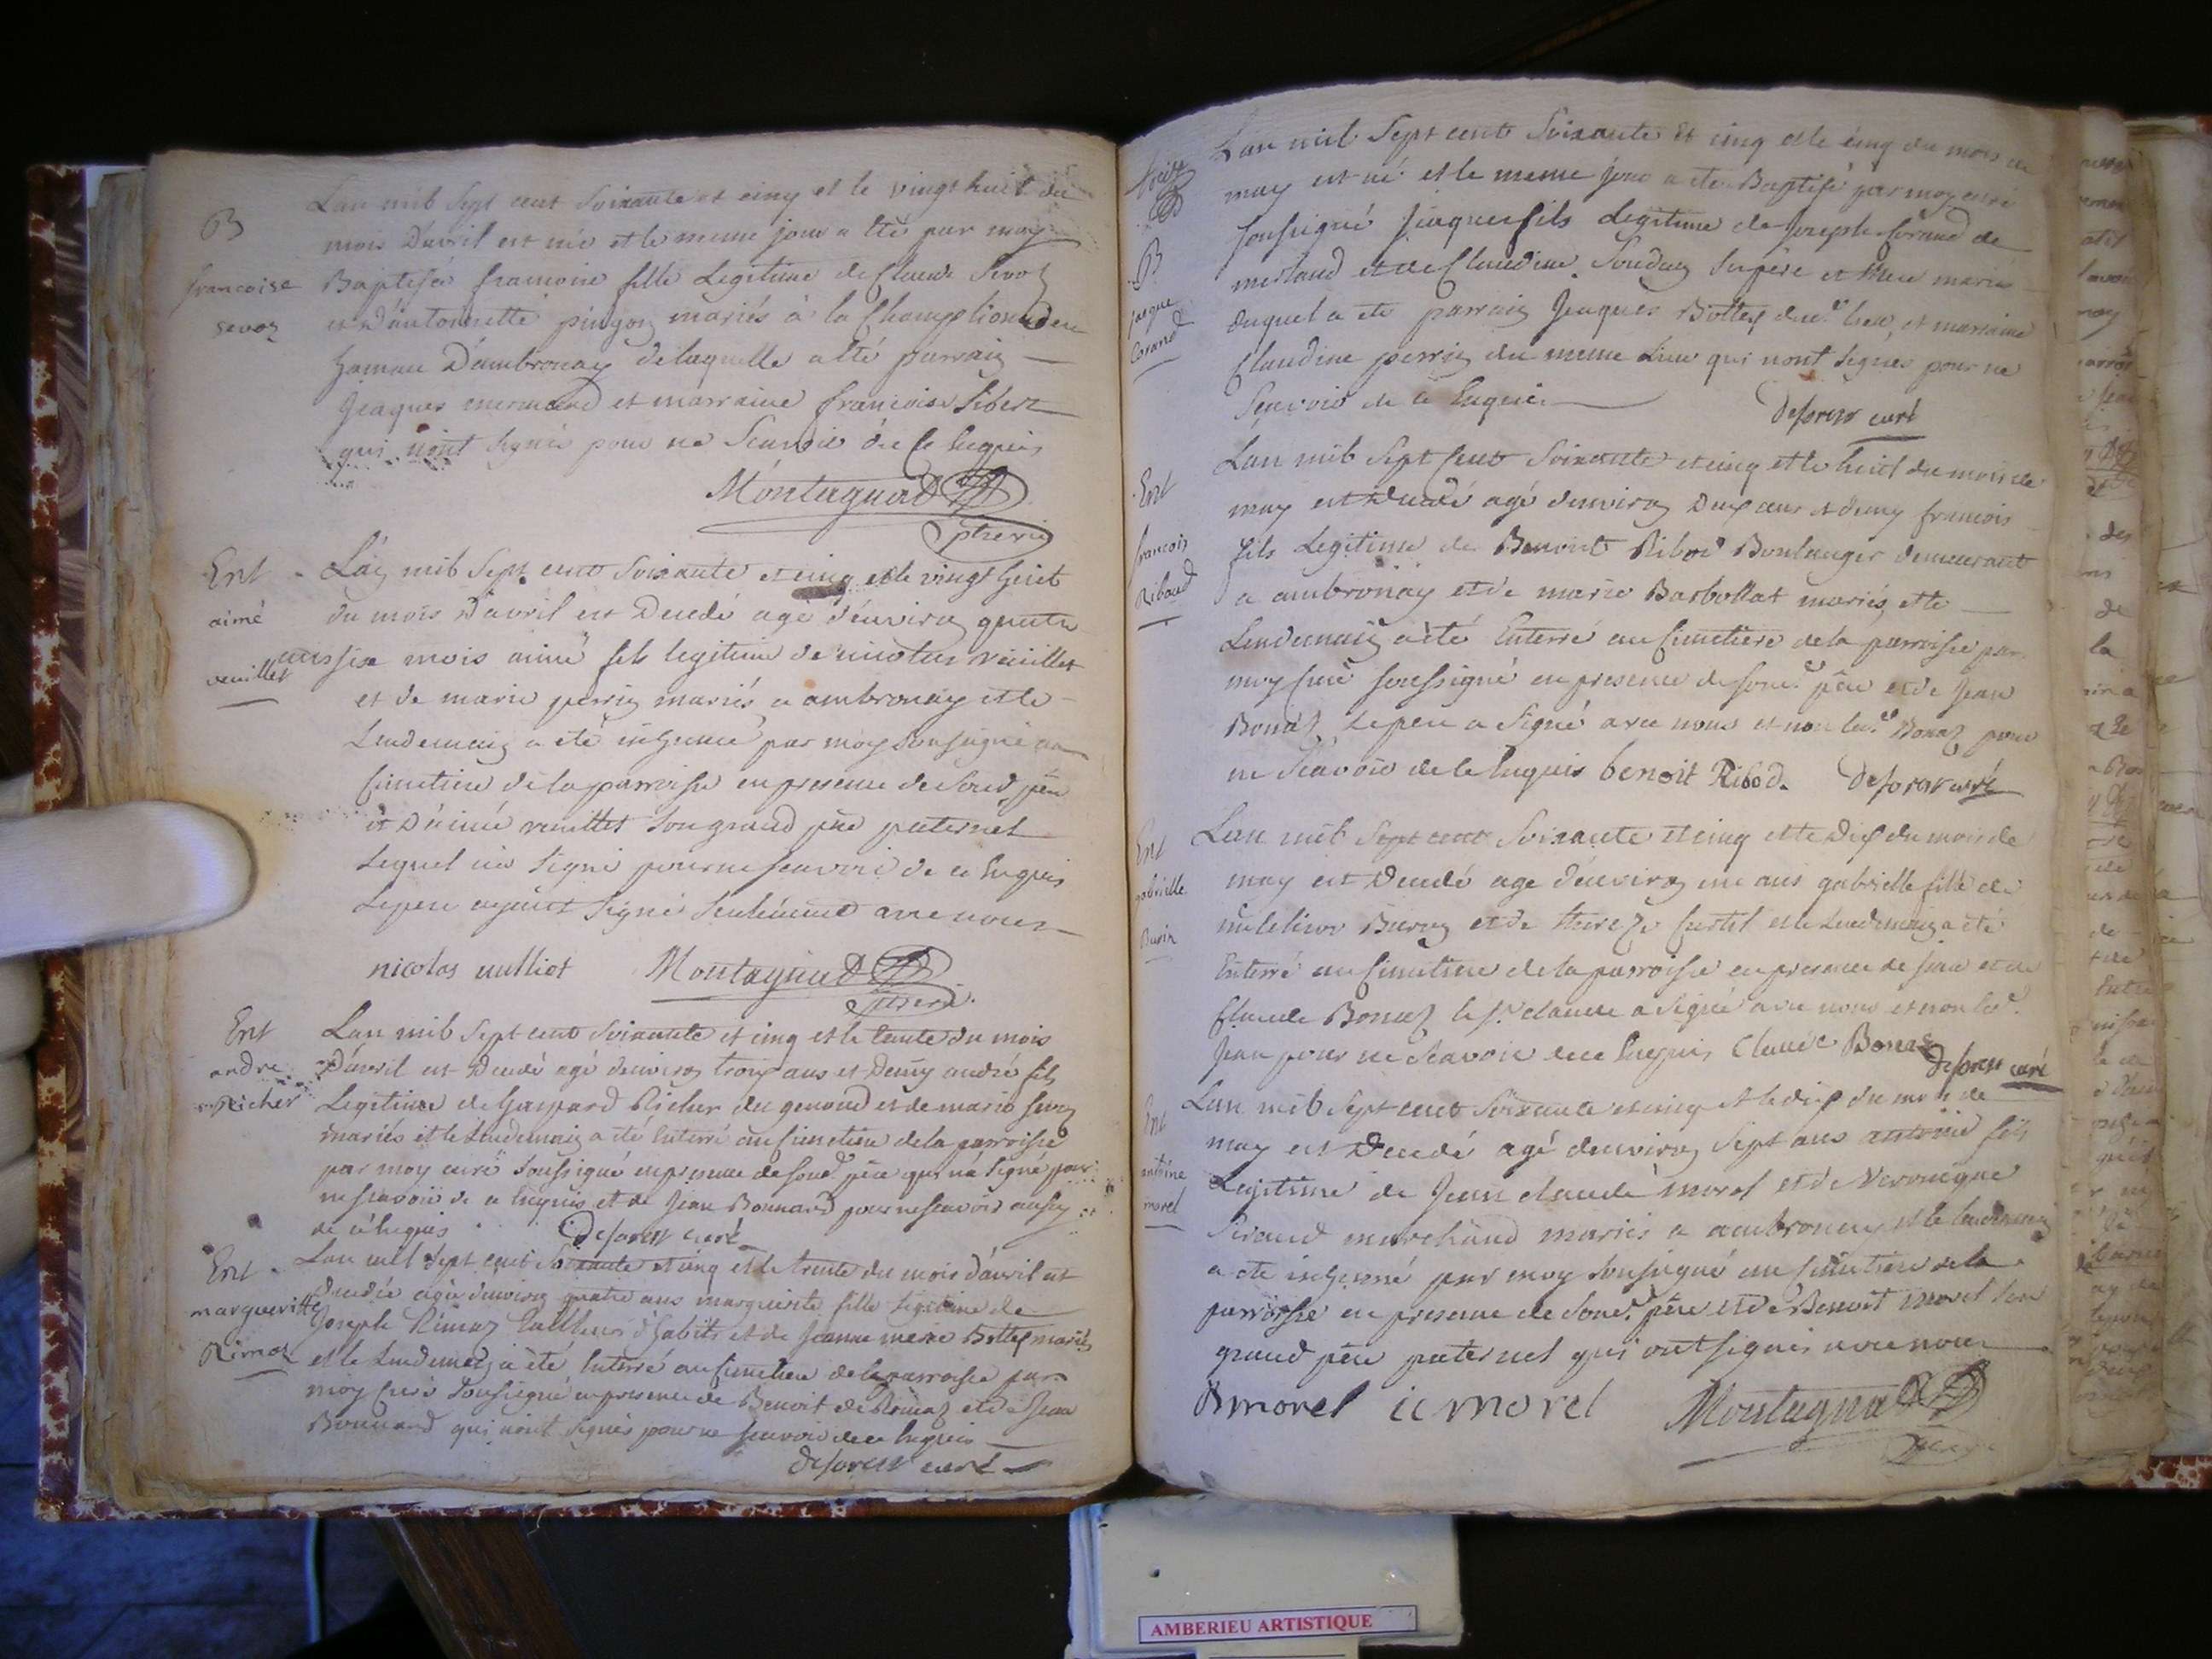 B
francoise
sevoz
Lan mil sept cent soixante et cinq et le vingt huit du
mois d'avril est née et le meme jour a eté par moy
Baptisée francoise fille Legitime de Claude Sevoz
et d'antoinette pingon mariés à la
hameau d'ambronay de laquelle a eté parrain
Jeaques mermand et marraine francoise Sibert
qui n'ont signés pour ne scavoir de ce enquis
Montagnad
Ent
aimé
veuillet
L'an mil sept cent soixante et cinq et le vingt huit
du mois d'avril est Decedé agé d'environ quatre
ans six mois aimé fils legitime de nicolas veuillet
et de marie perrin mariés a ambronay et le
Lendemain a eté inhumé par moy soussigné au
Cimetiere de la parroisse en presence de son d. père
et d'aimé veuillet son grand père paternel
lequel n'a signé pour ne scavoir de ce enquis
Le pere ayant signé seulement avec nous
nicolas vulliot Montagnad
Ent
andre
Richer
Lan mil sept cent soixante et cinq et le trente du mois
d'avril est Decedé agé denviron trois ans et Demy andré fils
Legitime de Gaspard Richer du genoud et de marie
mariés et le Lendemain a eté enterré au Cimetiere de la parroisse
par moy curé soussigné en presence de son d. père qui n'a signé pour
ne scavoir de ce enquis et de Jean Bonnard pour ne scavoir aussy
de ce enquis Deforest curé
Ent
margueritte
Rimoz
Lan mil sept cent soixante et cinq et le trente du mois d'avril est
Decedée agée denviron quatre ans marguerite fille legitime de
Joseph Rimoz tailleur d'habits et de Jeanne marie Bottex mariés
et le Lendemain a eté enterré au Cimetiere de la parroisse par
moy Curé soussigné en presence de Benoit de Rimaz et de Jean
Bonnard qui n'ont signés pour ne scavoir de ce enquis
deforest curé
B
Jaque
Corand
Lan mil sept cent soixante et cinq et le cinq du mois de
may est né et le meme jour a eté Baptisé par moy curé
soussigné Jaques fils Legitime de Joseph Corand de
merland et de Claudine ses père et Mere mariés
duquel a eté parrain Jeaques Bottex du d. lieu et marraine
Claudine perrin du meme Lieu qui nont signés pour ne
scavoir de ce enquis
deforest curé
Ent
francois
Ribaud
Lan mil sept cent soixante et cinq et le huit du mois de
may est Decedé agé denviron Deux ans et demy francois
fils Legitime de Benoit Ribod Boulanger demeurant
a ambronay et de marie Barbollat mariés et le
Lendemain a été Enterré au Cimetiere de la parroisse par
moy Curé soussigné en presence de son d. père et de Jean
Bonaz le pere a signé avec nous et non le d. Bonaz pour
ne scavoir de ce enquis benoit Ribod. deforest curé
Ent
gabrielle
Lan mil sept cent soixante et cinq et le Dix du mois de
may est Decedé age d'environ un ans gabrielle fille de
et de Cu et le Lendemain a eté
Enterré au Cimetiere de la parroisse en presence de Jean et de
Claude Bonaz le s. claude a signé avec nous et non le d.
Jean pour ne Scavoir de ce enquis Claude Bonaz
deforest curé
Ent
antoine
morel
Lan mil sept cent soixante et cinq et le dix du mois de
may est Decedé agé denviron sept ans antoine fils
Legitime de Jean claude morel et de Veronique
Siraud marchand mariés a ambronay et le lendemain
a eté inhumé par moy soussigné au Cimetiere de la
parroisse en presence de son d. père et de Benoit morel son
grand père paternel qui ont signés avec nous
B morel ic morel Montagnad
AMBERIEU ARTISTIQUE